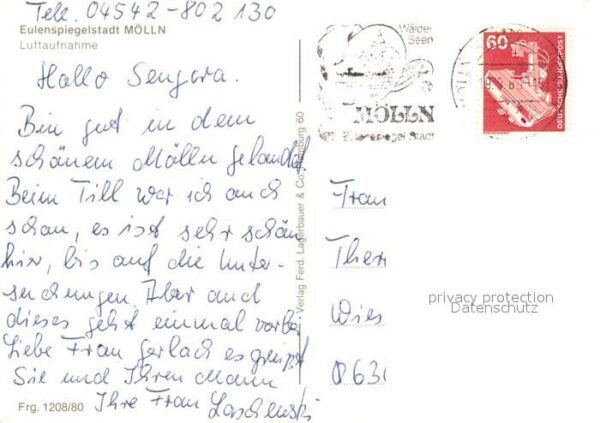 Tele. 04542-802 130
Eulenspiegelstadt MÖLLN
Luftaufnahme
Hallo
Bin gut in dem
schönem Mölln gelandet
Beim Till war ich auch
schon, es ist sehr schön
hier, bis auf die Unter-
suchungen. Aber auch
dieses geht einmal vorbei
Liebe Frau Gerlach es grüßt
Sie und Ihren Mann
Ihre Frau
Frg. 1208/80
Verlag Ferd. Lagerbauer & Co. Hamburg 60
Wälder
Seen
MÖLLN
Eulenspiegel-Stadt
60
DEUTSCHE BUNDESPOST
Frau
Ther
Wies
0631
privacy protection
Datenschutz